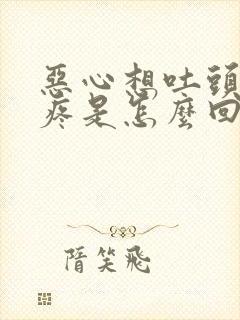 惡心想吐頭
疼是怎麼回
隋笑飛